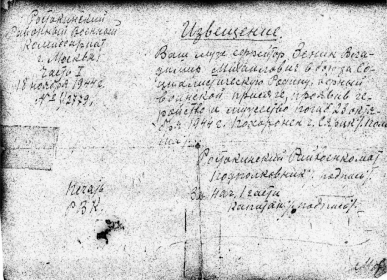 Ростокинский
Районный Военный
Комиссариат
г. Москва
Часть I
18 ноября 1944 г.
№ 1/2779
Извещение.
Ваш муж ефрейтор Зенин Вла-
димир Михайлович в бою за Со-
циалистическую Родину, верный
воинской присяге, проявив ге-
ройство и мужество погиб 28 октя-
бря 1944 г. Похоронен г.
Ростокинский Райвоенкомат
Подполковник /подпись/.
За Нач. 1 части
капитан /подпись/.
Печать
Р.В.К.